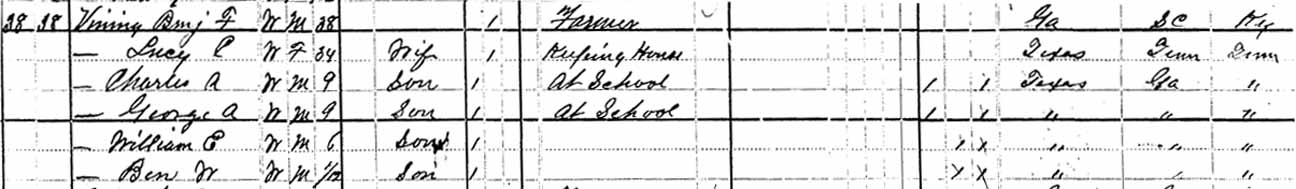 38 38 Vining Benj F W M 38 1 Farmer Ga SC Ky
— Lucy E W F 34 Wife 1 Keeping House Texas Tenn Tenn
— Charles A W M 9 Son 1 At School 1 1 Texas Ga "
— George A W M 9 Son 1 At School 1 1 " " "
— William E W M 6 Son 1 x x " " "
— Ben W W M 1/12 Son 1 x x " " "